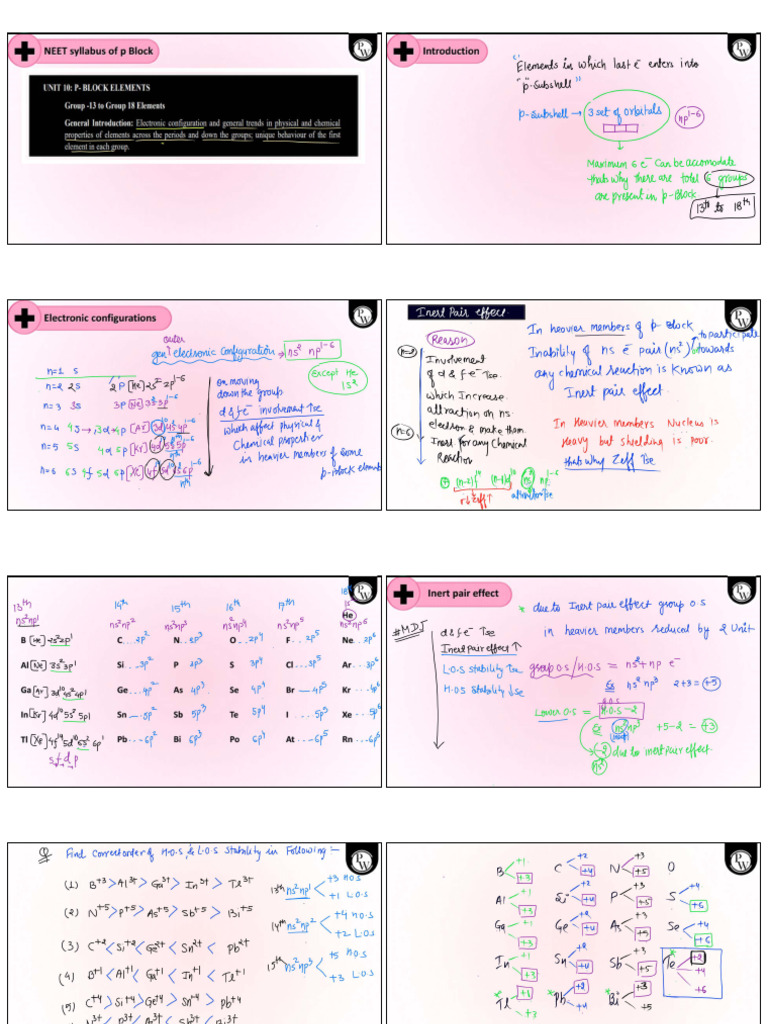 NEET syllabus of p Block
UNIT 10: P- BLOCK ELEMENTS
Group -13 to Group 18 Elements
General Introduction: Electronic configuration and general trends in physical and chemical
properties of elements across the periods and down the groups; unique behaviour of the first
element in each group.
Introduction
"Elements in which last e⁻ enters into
"p-Subshell"
p-Subshell → 3 set of orbitals
np¹⁻⁶
Maximum 6 e⁻ can be accomodate
thats why there are total 6 groups
are present in p-Block
13th to 18th
Electronic configurations
outer
genl electronic configuration → ns² np¹⁻⁶
Except He
1s²
n=1 s
n=2 2s 2p [He] 2s² 2p¹⁻⁶
n=3 3s 3p [Ne] 3s² 3p¹⁻⁶
n=4 4s → ,3d 4p [Ar] 3d¹⁰ 4s² 4p¹⁻⁶
n=5 5s 4d 5p [Kr] 4d¹⁰ 5s² 5p¹⁻⁶
n=6 6s 4f 5d 6p [Xe] 4f¹⁴ 5d¹⁰ 6s² 6p¹⁻⁶
on moving
down the group
d & f e⁻ involvement ↑se
which affect physical &
Chemical properties
in heavier members of some
p-block elements
Inert Pair effect
Reason
n=3
n=6
Involvement
of d & f e⁻ ↑se
which Increase
attraction on ns
electron & make them
Inert for any Chemical
Reaction
(n-2)f¹⁴ (n-1)d¹⁰ ns² np¹⁻⁶
r↓ Zeff↑ attraction ↑se
In heavier members of p-Block
Inability of ns e⁻ pair (ns²) to participate
towards
any chemical reaction is known as
Inert pair effect.
In Heavier members Nucleus is
Heavy but shielding is poor.
thats why Zeff ↑se
13th 14th 15th 16th 17th 18th
ns²np¹ ns²np² ns²np³ ns²np⁴ ns²np⁵ ns²np⁶
He
B [He] 2s²2p¹ C...2p² N...2p³ O...2p⁴ F...2p⁵ Ne...2p⁶
Al [Ne] 3s²3p¹ Si...3p² P 3p³ S 3p⁴ Cl...3p⁵ Ar...3p⁶
Ga [Ar] 3d¹⁰4s²4p¹ Ge...4p² As 4p³ Se 4p⁴ Br—4p⁵ Kr...4p⁶
In [Kr] 4d¹⁰5s²5p¹ Sn...5p² Sb 5p³ Te 5p⁴ I...5p⁵ Xe...5p⁶
Tl [Xe] 4f¹⁴5d¹⁰6s²6p¹ Pb...6p² Bi 6p³ Po 6p⁴ At...6p⁵ Rn...6p⁶
s f d p
Inert pair effect
* due to Inert pair effect group O.S
in heavier members reduced by 2 Unit
#MDJ
d & f e⁻ ↑se
Inert pair effect ↑
L.O.S stability ↑se
H.O.S stability ↓se
group O.S / H.O.S = ns² + np e⁻
Ex ns² np³ 2+3 = +5
Lower O.S = H.O.S - 2
Ex ns² np³ +5-2 = +3
-2 due to inert pair effect
ns²
Q Find Correct order of H.O.S, & L.O.S stability in following :-
(1) B⁺³ > Al³⁺ > Ga³⁺ > In³⁺ > Tl³⁺
(2) N⁺⁵ > P⁺⁵ > As⁺⁵ > Sb⁺⁵ > Bi⁵⁺
(3) C⁺² < Si⁺² < Ge²⁺ < Sn²⁺ < Pb²⁺
(4) B⁺¹ < Al⁺¹ < Ga⁺¹ < In⁺¹ < Tl⁺¹
(5) C⁺⁴ > Si⁺⁴ > Ge⁺⁴ > Sn⁺⁴ > Pb⁺⁴
N³⁺ < P³⁺ < As³⁺ < Sb³⁺ < Bi³⁺
13th ns²np¹ +3 H.O.S
+1 L.O.S
14th ns²np² +4 H.O.S
+2 L.O.S
15th ns²np³ +5 H.O.S
+3 L.O.S
B +1 +3 C +2 +4 N +3 +5 O
Al +1 +3 Si +2 +4 P +3 +5 S +4 +6
Ga +1 +3 Ge +2 +4 As +3 +5 Se +4 +6
In +1 +3 Sn +2 +4 Sb +3 +5 Te +2 +4 +6
Tl +1 +3 Pb +2 +4 Bi +3 +5